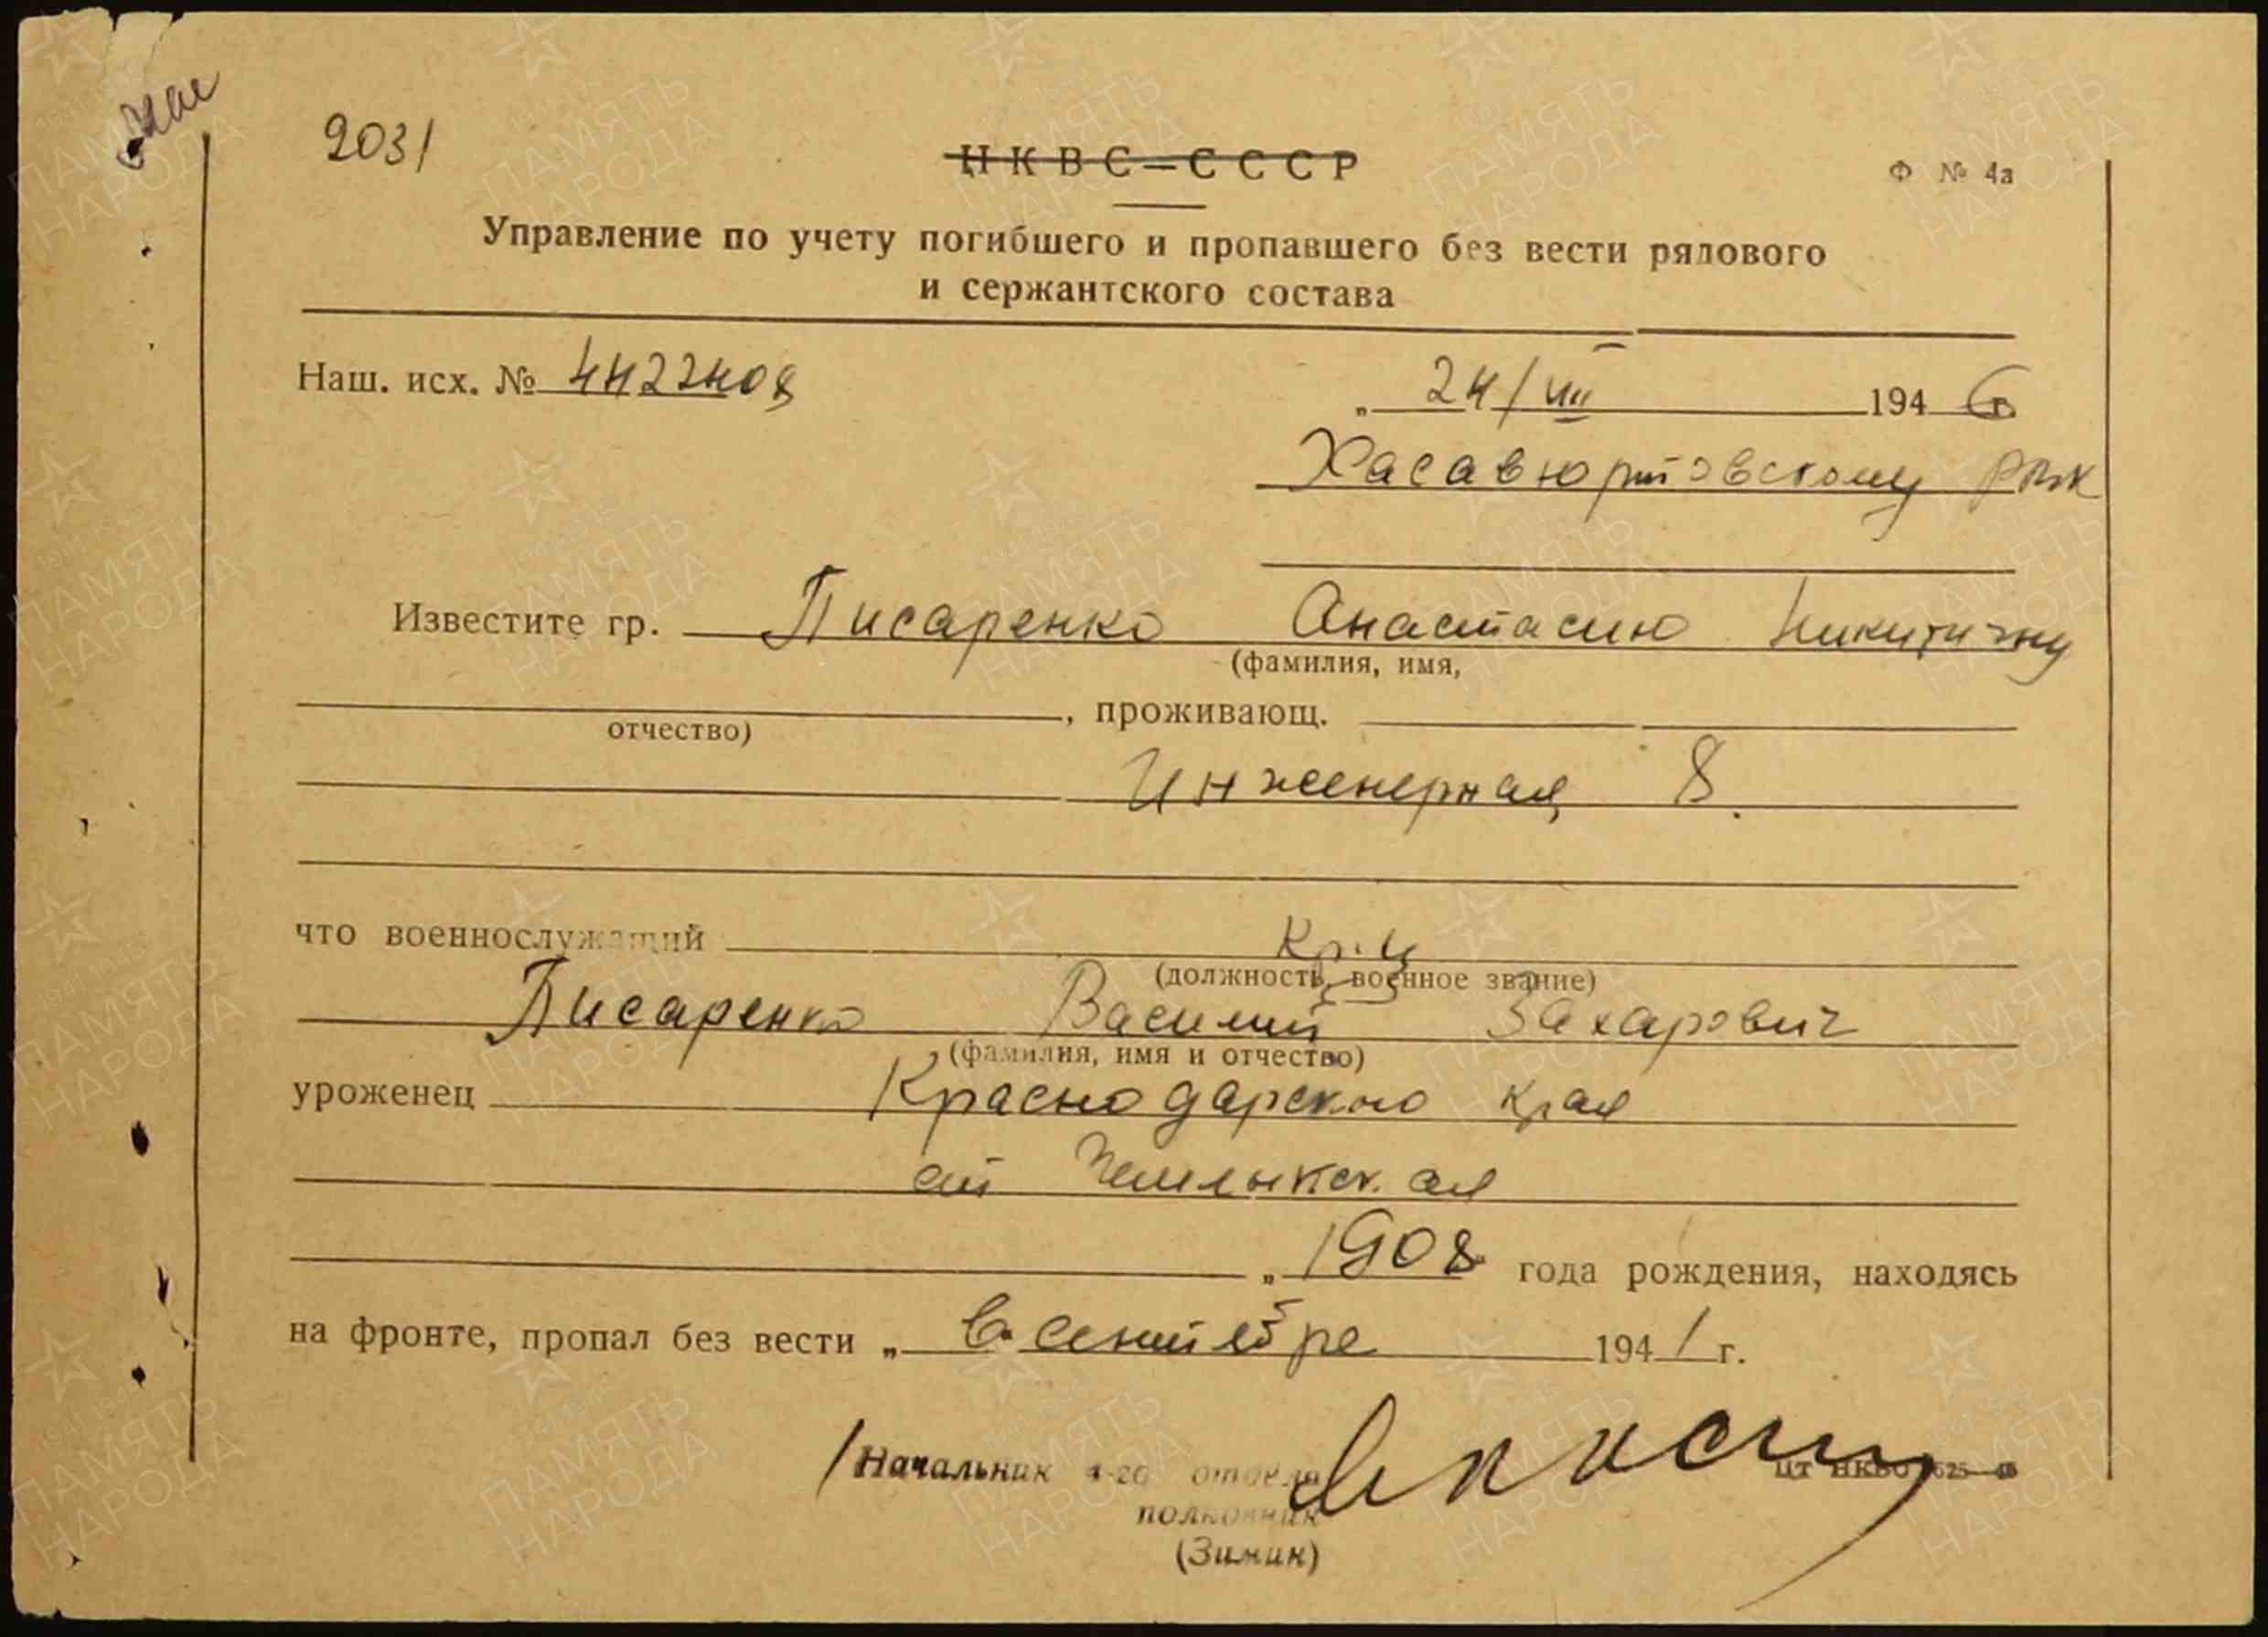 2031
НКВС-СССР
Ф № 4а
Управление по учету погибшего и пропавшего без вести рядового
и сержантского состава
Наш. исх. № 4422408
„ 24/VIII 1946 г.
Хасавюртовскому РВК
Известите гр. Писаренко Анастасию Никитичну
(фамилия, имя,
отчество)
, проживающ.
Инженерная 8.
что военнослужащий кр-ц
(должность, военное звание)
Писаренко Василий Захарович
(фамилия, имя и отчество)
уроженец Краснодарского края
ст Чемлыкская
„ 1908 года рождения, находясь
на фронте, пропал без вести „ в сентябре 1941 г.
Начальник 4-го отдела
полковник
(Зимин)